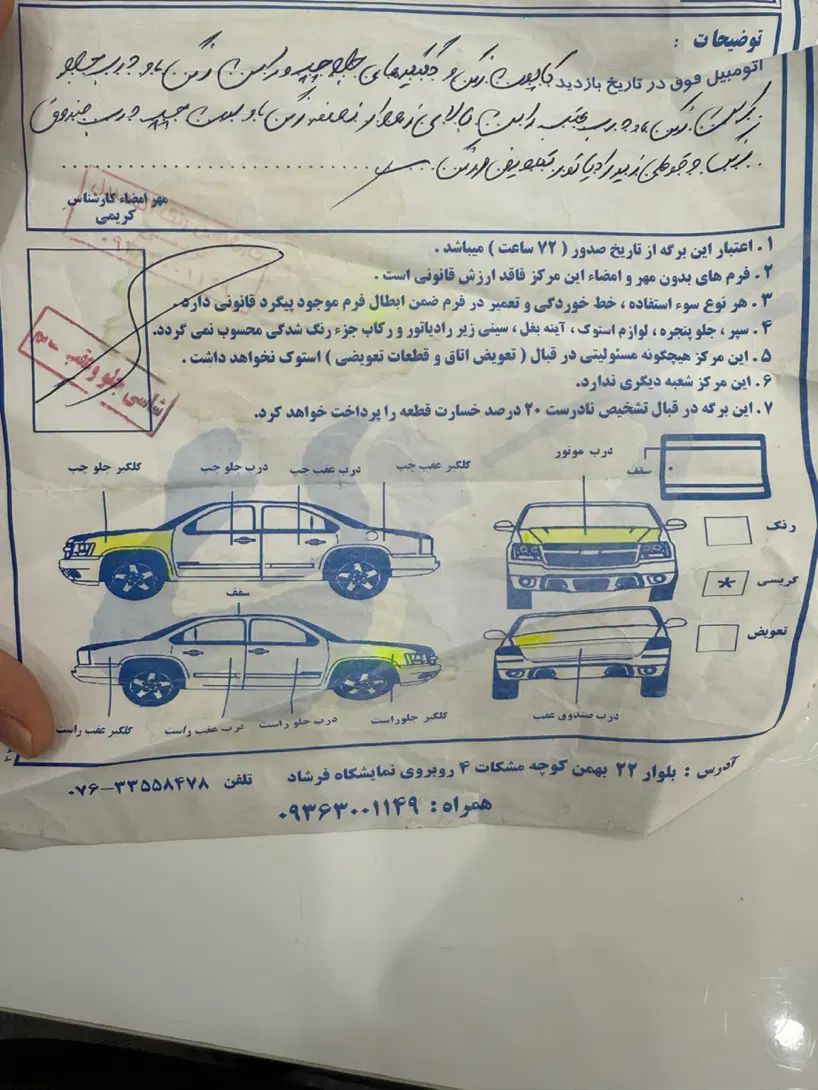 توضیحات :
اتومبیل فوق در تاریخ بازدید کاپوت رنگ و گلگیرهای جلو چپ و راست رنگ و درب جلو
رنگ و درب عقب راست بالای نوار از نصفه رنگ ستون چپ درب صندوق
و قوطی زیر رادیاتور تعویض
مهر امضاء کارشناس
کریمی
۱ . اعتبار این برگه از تاریخ صدور ( ۷۲ ساعت ) میباشد .
۲ . فرم های بدون مهر و امضاء این مرکز فاقد ارزش قانونی است .
۳ . هر نوع سوء استفاده ، خط خوردگی و تعمیر در فرم ضمن ابطال فرم موجود پیگرد قانونی دارد .
۴ . سپر ، جلو پنجره ، لوازم استوک ، آینه بغل ، سینی زیر رادیاتور و رکاب جزء رنگ شدگی محسوب نمی گردد.
۵ . این مرکز هیچگونه مسئولیتی در قبال ( تعویض اتاق و قطعات تعویضی ) استوک نخواهد داشت .
۶ . این مرکز شعبه دیگری ندارد.
۷ . این برگه در قبال تشخیص نادرست ۲۰ درصد خسارت قطعه را پرداخت خواهد کرد.
شاسی جلو و عقب سالم
گلگیر جلو چپ
درب جلو چپ
درب عقب چپ
گلگیر عقب چپ
درب موتور
سقف
رنگ
گریسی
*
تعویض
سقف
گلگیر عقب راست
درب عقب راست
درب جلو راست
گلگیر جلوراست
درب صندوق عقب
آدرس : بلوار ۲۲ بهمن کوچه مشکات ۴ روبروی نمایشگاه فرشاد تلفن ۳۳۵۵۸۴۷۸-۰۷۶
همراه : ۰۹۳۶۳۰۰۱۱۴۹